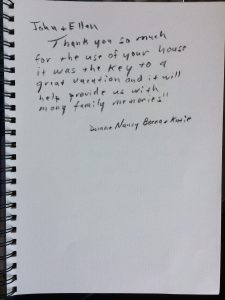 John + Ellen
Thank you so much
for the use of your house
it was the key to a
great vacation and it will
help provide us with
many family memories!!
Nancy Berna + Katie